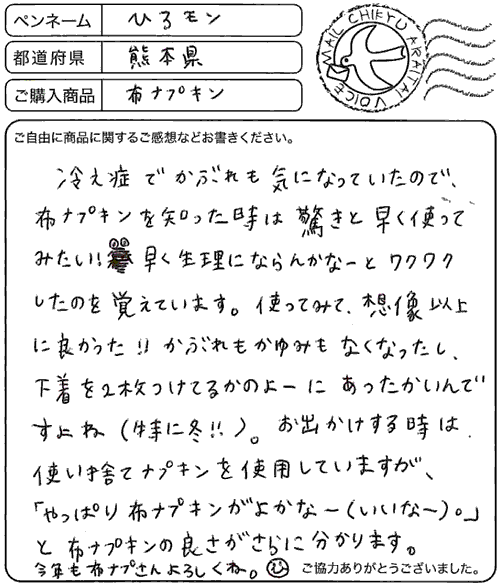 ペンネーム ひろモン
都道府県 熊本県
ご購入商品 布ナプキン
MAIL CHIKYU ARAITAI VOICE
ご自由に商品に関するご感想などお書きください。
冷え症でかぶれも気になっていたので、
布ナプキンを知った時は驚きと早く使って
みたい！早く生理にならんかなーとワクワク
したのを覚えています。使ってみて、想像以上
に良かった!! かぶれもかゆみもなくなったし、
下着を2枚つけてるかのよーにあったかいんで
すよね（特に冬!!）。お出かけする時は、
使い捨てナプキンを使用していますが、
「やっぱり布ナプキンがよかな〜（いいな〜）。」
と布ナプキンの良さがさらに分かります。
今年も布ナプさんよろしくね。
ご協力ありがとうございました。